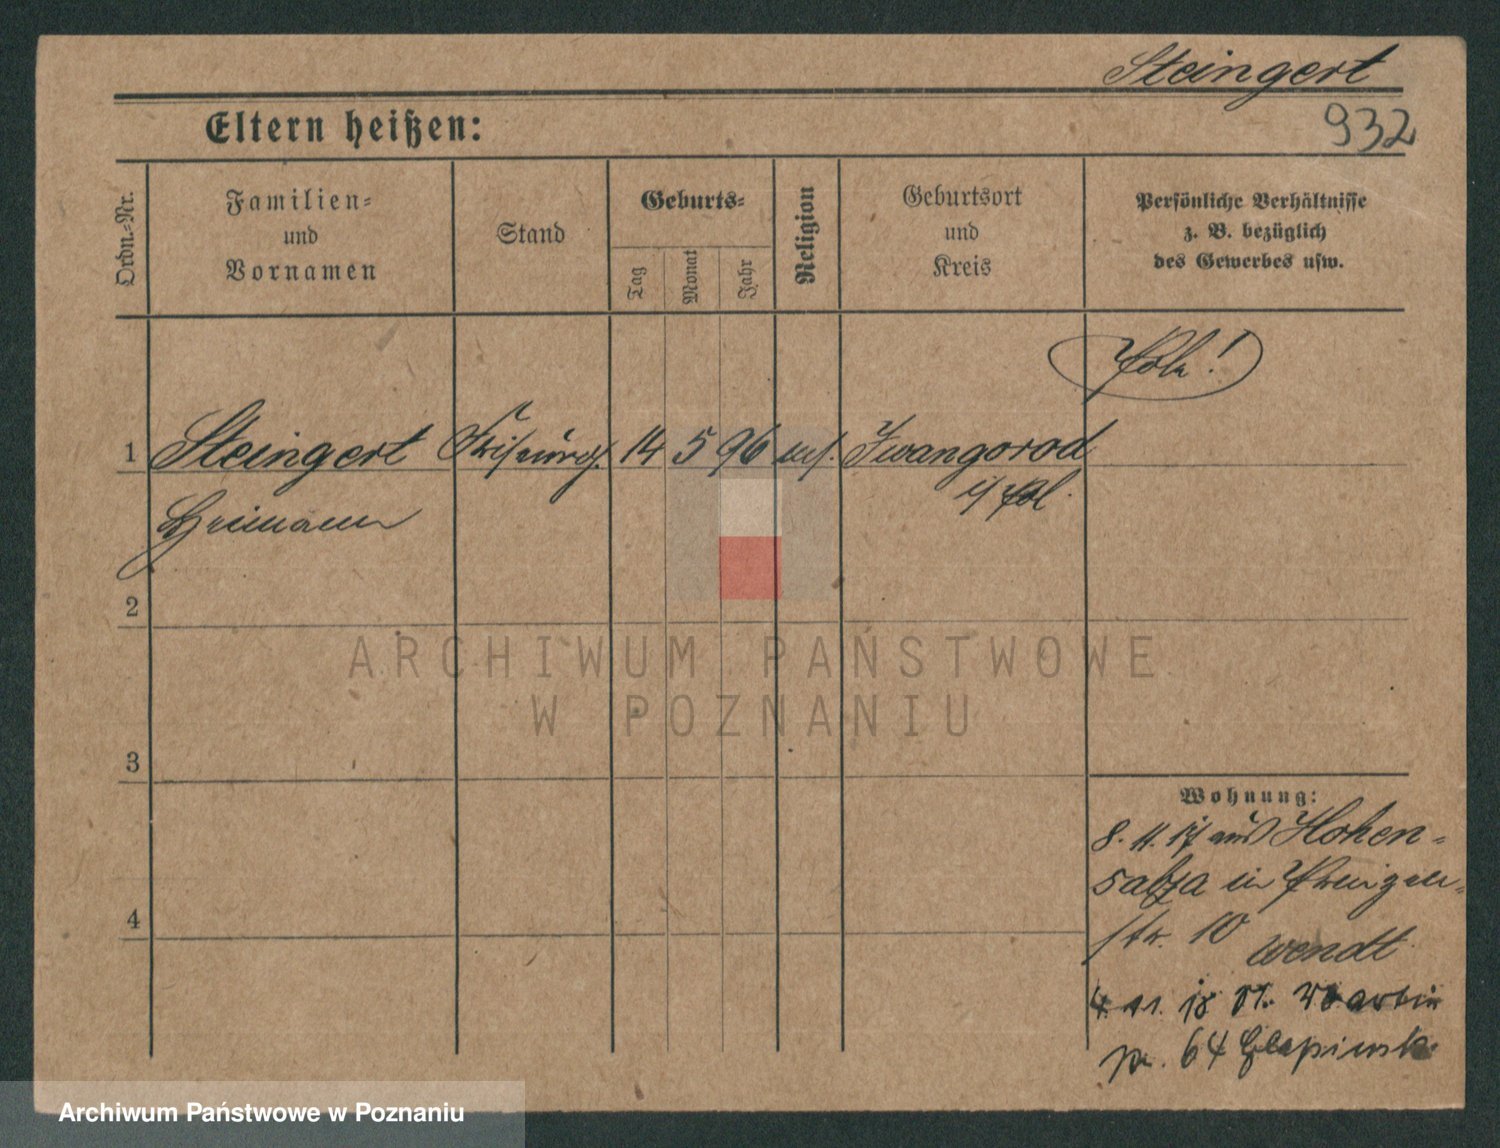 Steingert
932
Eltern heißen:
Ordn.-Nr.
Familien-
und
Vornamen
Stand
Geburts-
Tag
Monat
Jahr
Religion
Geburtsort
und
Kreis
Persönliche Verhältnisse
z. B. bezüglich
des Gewerbes usw.
Pole!
1 Steingert 14 5 96 Iwangorod
Heimann
2
3
4
Wohnung:
8. 11. 17 aus Hohen-
salza in
str. 10 Wendt
4. 11. 18 St. Martin
64 Glapinski
ARCHIWUM PAŃSTWOWE
W POZNANIU
Archiwum Państwowe w Poznaniu